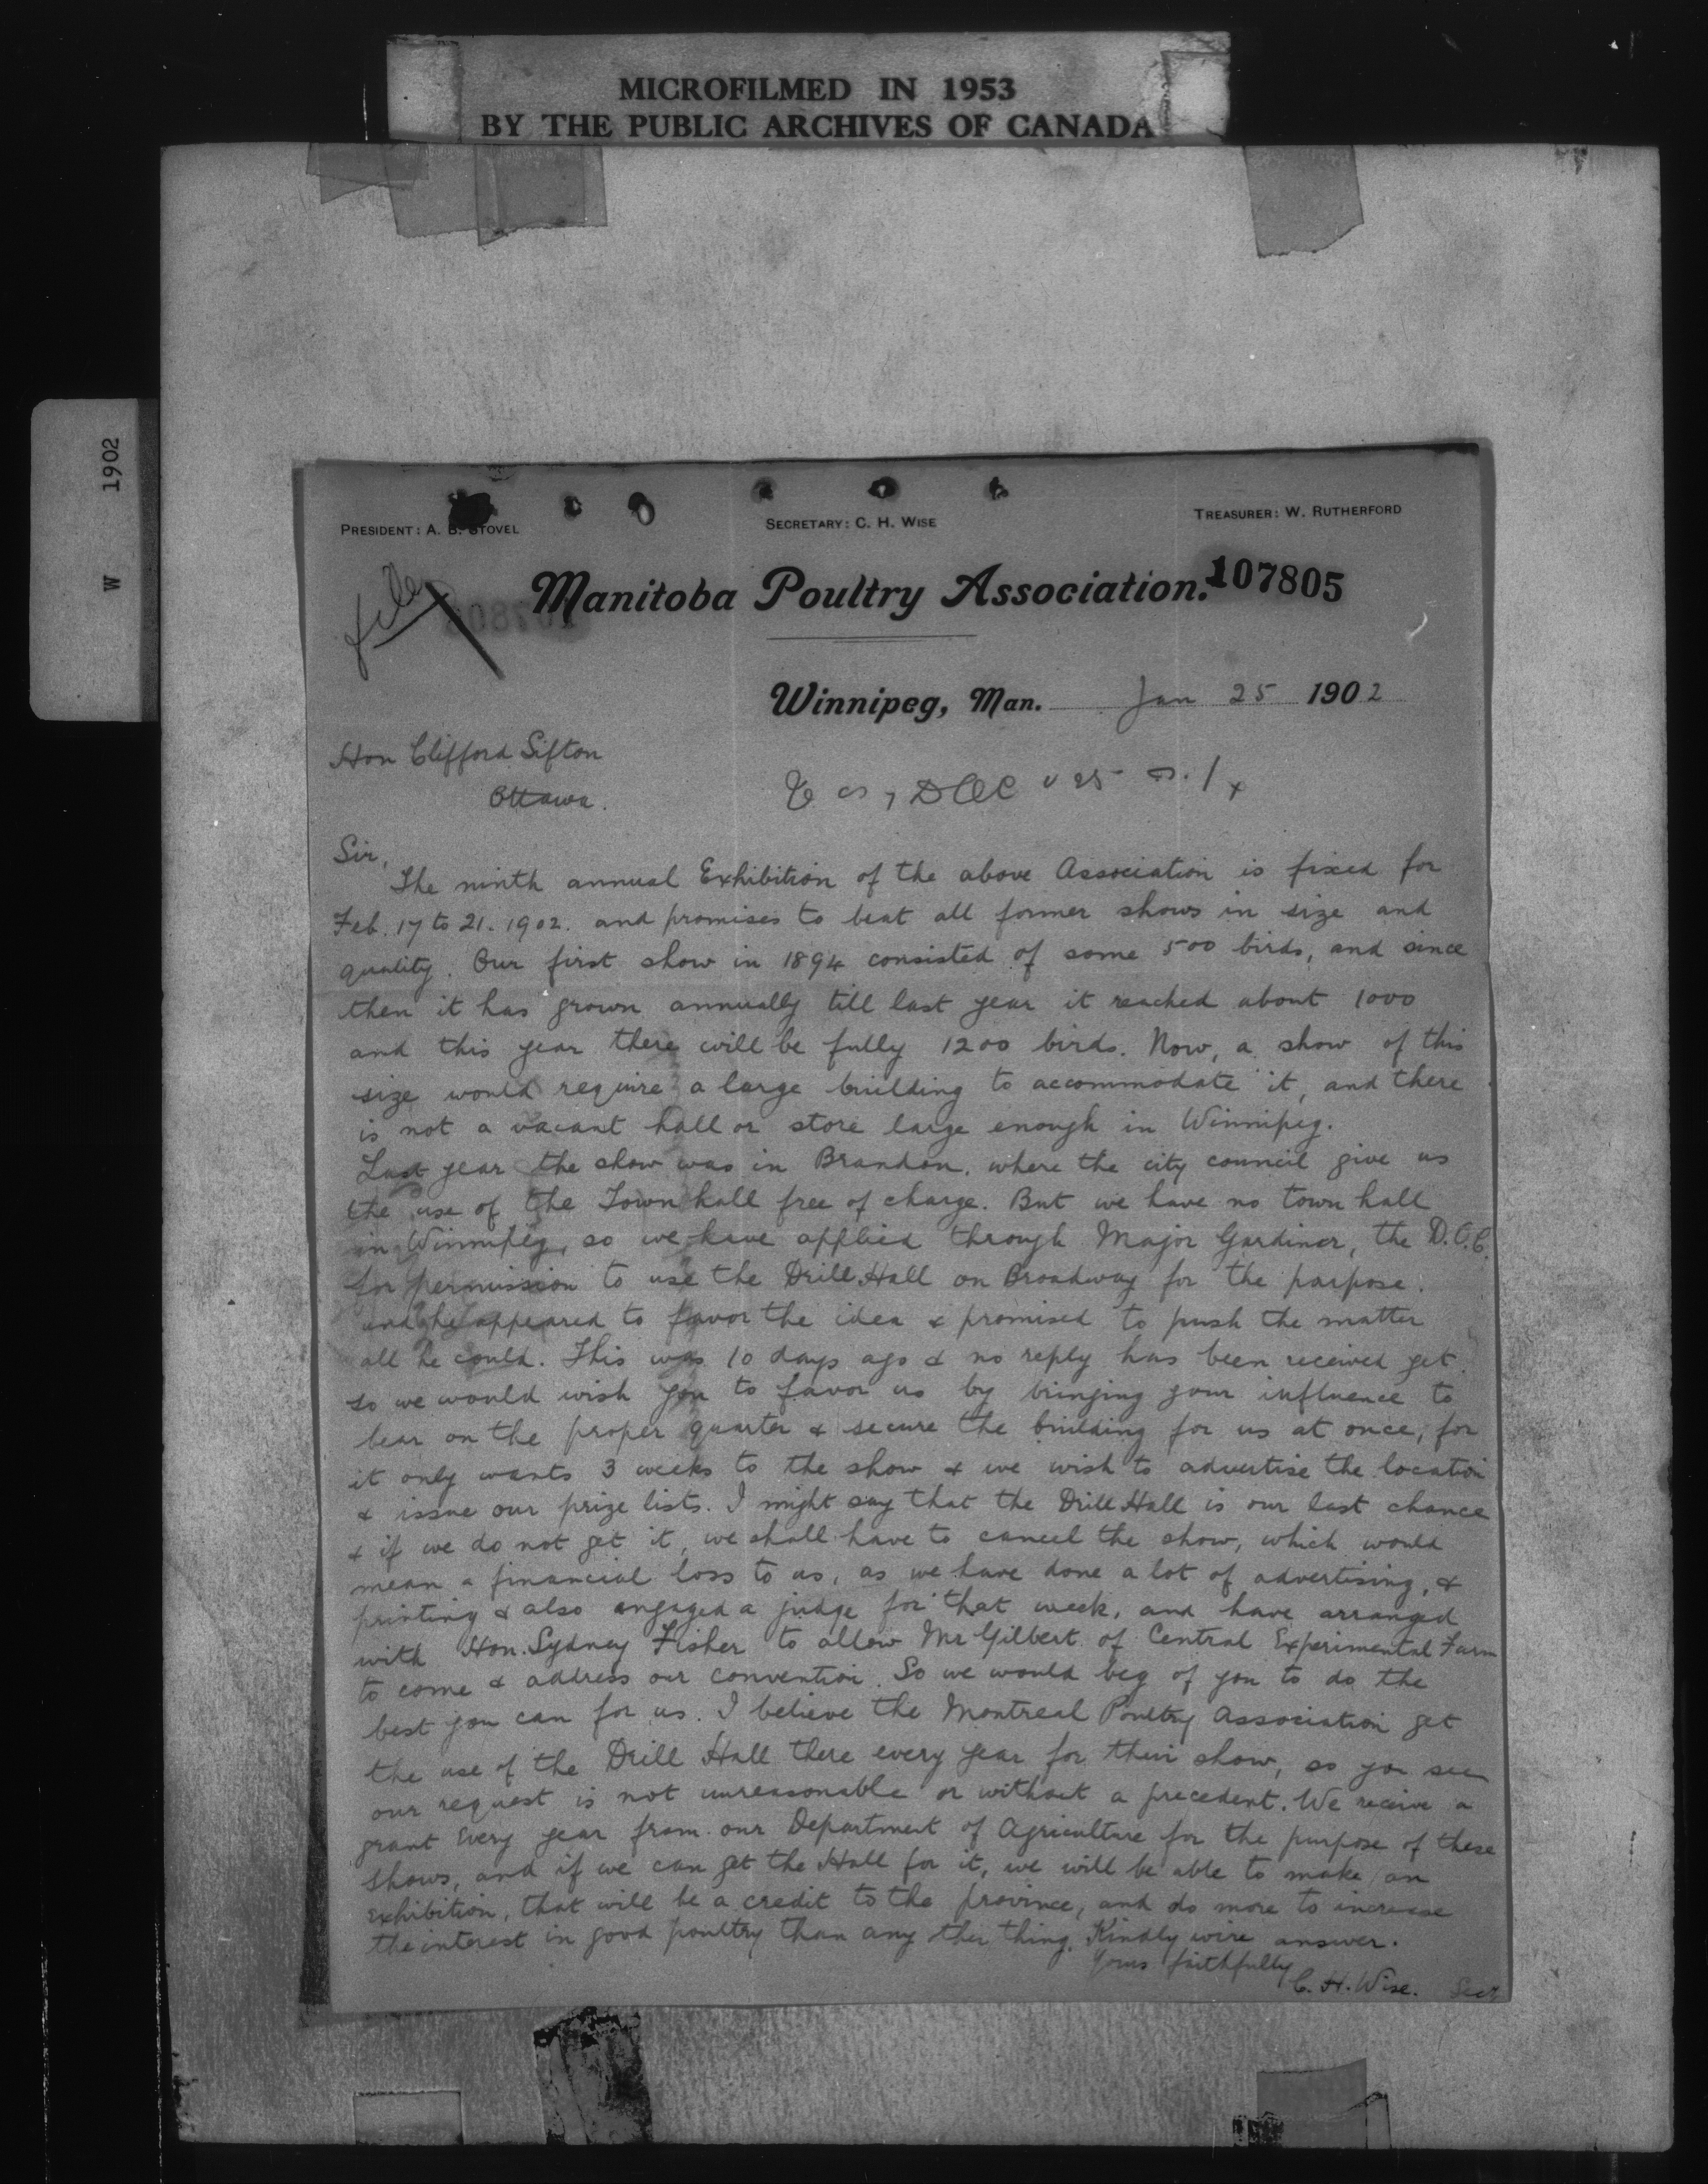 MICROFILMED IN 1953
BY THE PUBLIC ARCHIVES OF CANADA
W 1902
PRESIDENT: A. B. STOVEL
SECRETARY: C. H. WISE
TREASURER: W. RUTHERFORD
file
Manitoba Poultry Association.
107805
Winnipeg, Man. Jan 25 1902
Hon Clifford Sifton
Ottawa.
Sir,
The ninth annual Exhibition of the above Association is fixed for
Feb. 17 to 21. 1902. and promises to beat all former shows in size and
quality. Our first show in 1894 consisted of some 500 birds, and since
then it has grown annually till last year it reached about 1000
and this year there will be fully 1200 birds. Now, a show of this
size would require a large building to accommodate it, and there
is not a vacant hall or store large enough in Winnipeg.
Last year the show was in Brandon, where the city council give us
the use of the Town hall free of charge. But we have no town hall
in Winnipeg, so we have applied through Major Gardiner, the D.O.C.
for permission to use the Drill Hall on Broadway for the purpose.
and he appeared to favor the idea & promised to push the matter
all he could. This was 10 days ago & no reply has been received yet.
so we would wish you to favor us by bringing your influence to
bear on the proper quarter & secure the building for us at once, for
it only wants 3 weeks to the show & we wish to advertise the location
& issue our prize lists. I might say that the Drill Hall is our last chance
& if we do not get it, we shall have to cancel the show, which would
mean a financial loss to us, as we have done a lot of advertising, &
printing & also engaged a judge for that week, and have arranged
with Hon. Sydney Fisher to allow Mr Gilbert of Central Experimental Farm
to come & address our convention. So we would beg of you to do the
best you can for us. I believe the Montreal Poultry Association get
the use of the Drill Hall there every year for their show, so you see
our request is not unreasonable or without a precedent. We receive a
grant every year from our Department of Agriculture for the purpose of these
shows, and if we can get the Hall for it, we will be able to make an
exhibition, that will be a credit to the province, and do more to increase
the interest in good poultry than any other thing. Kindly wire answer.
Yours faithfully
C. H. Wise. Secy